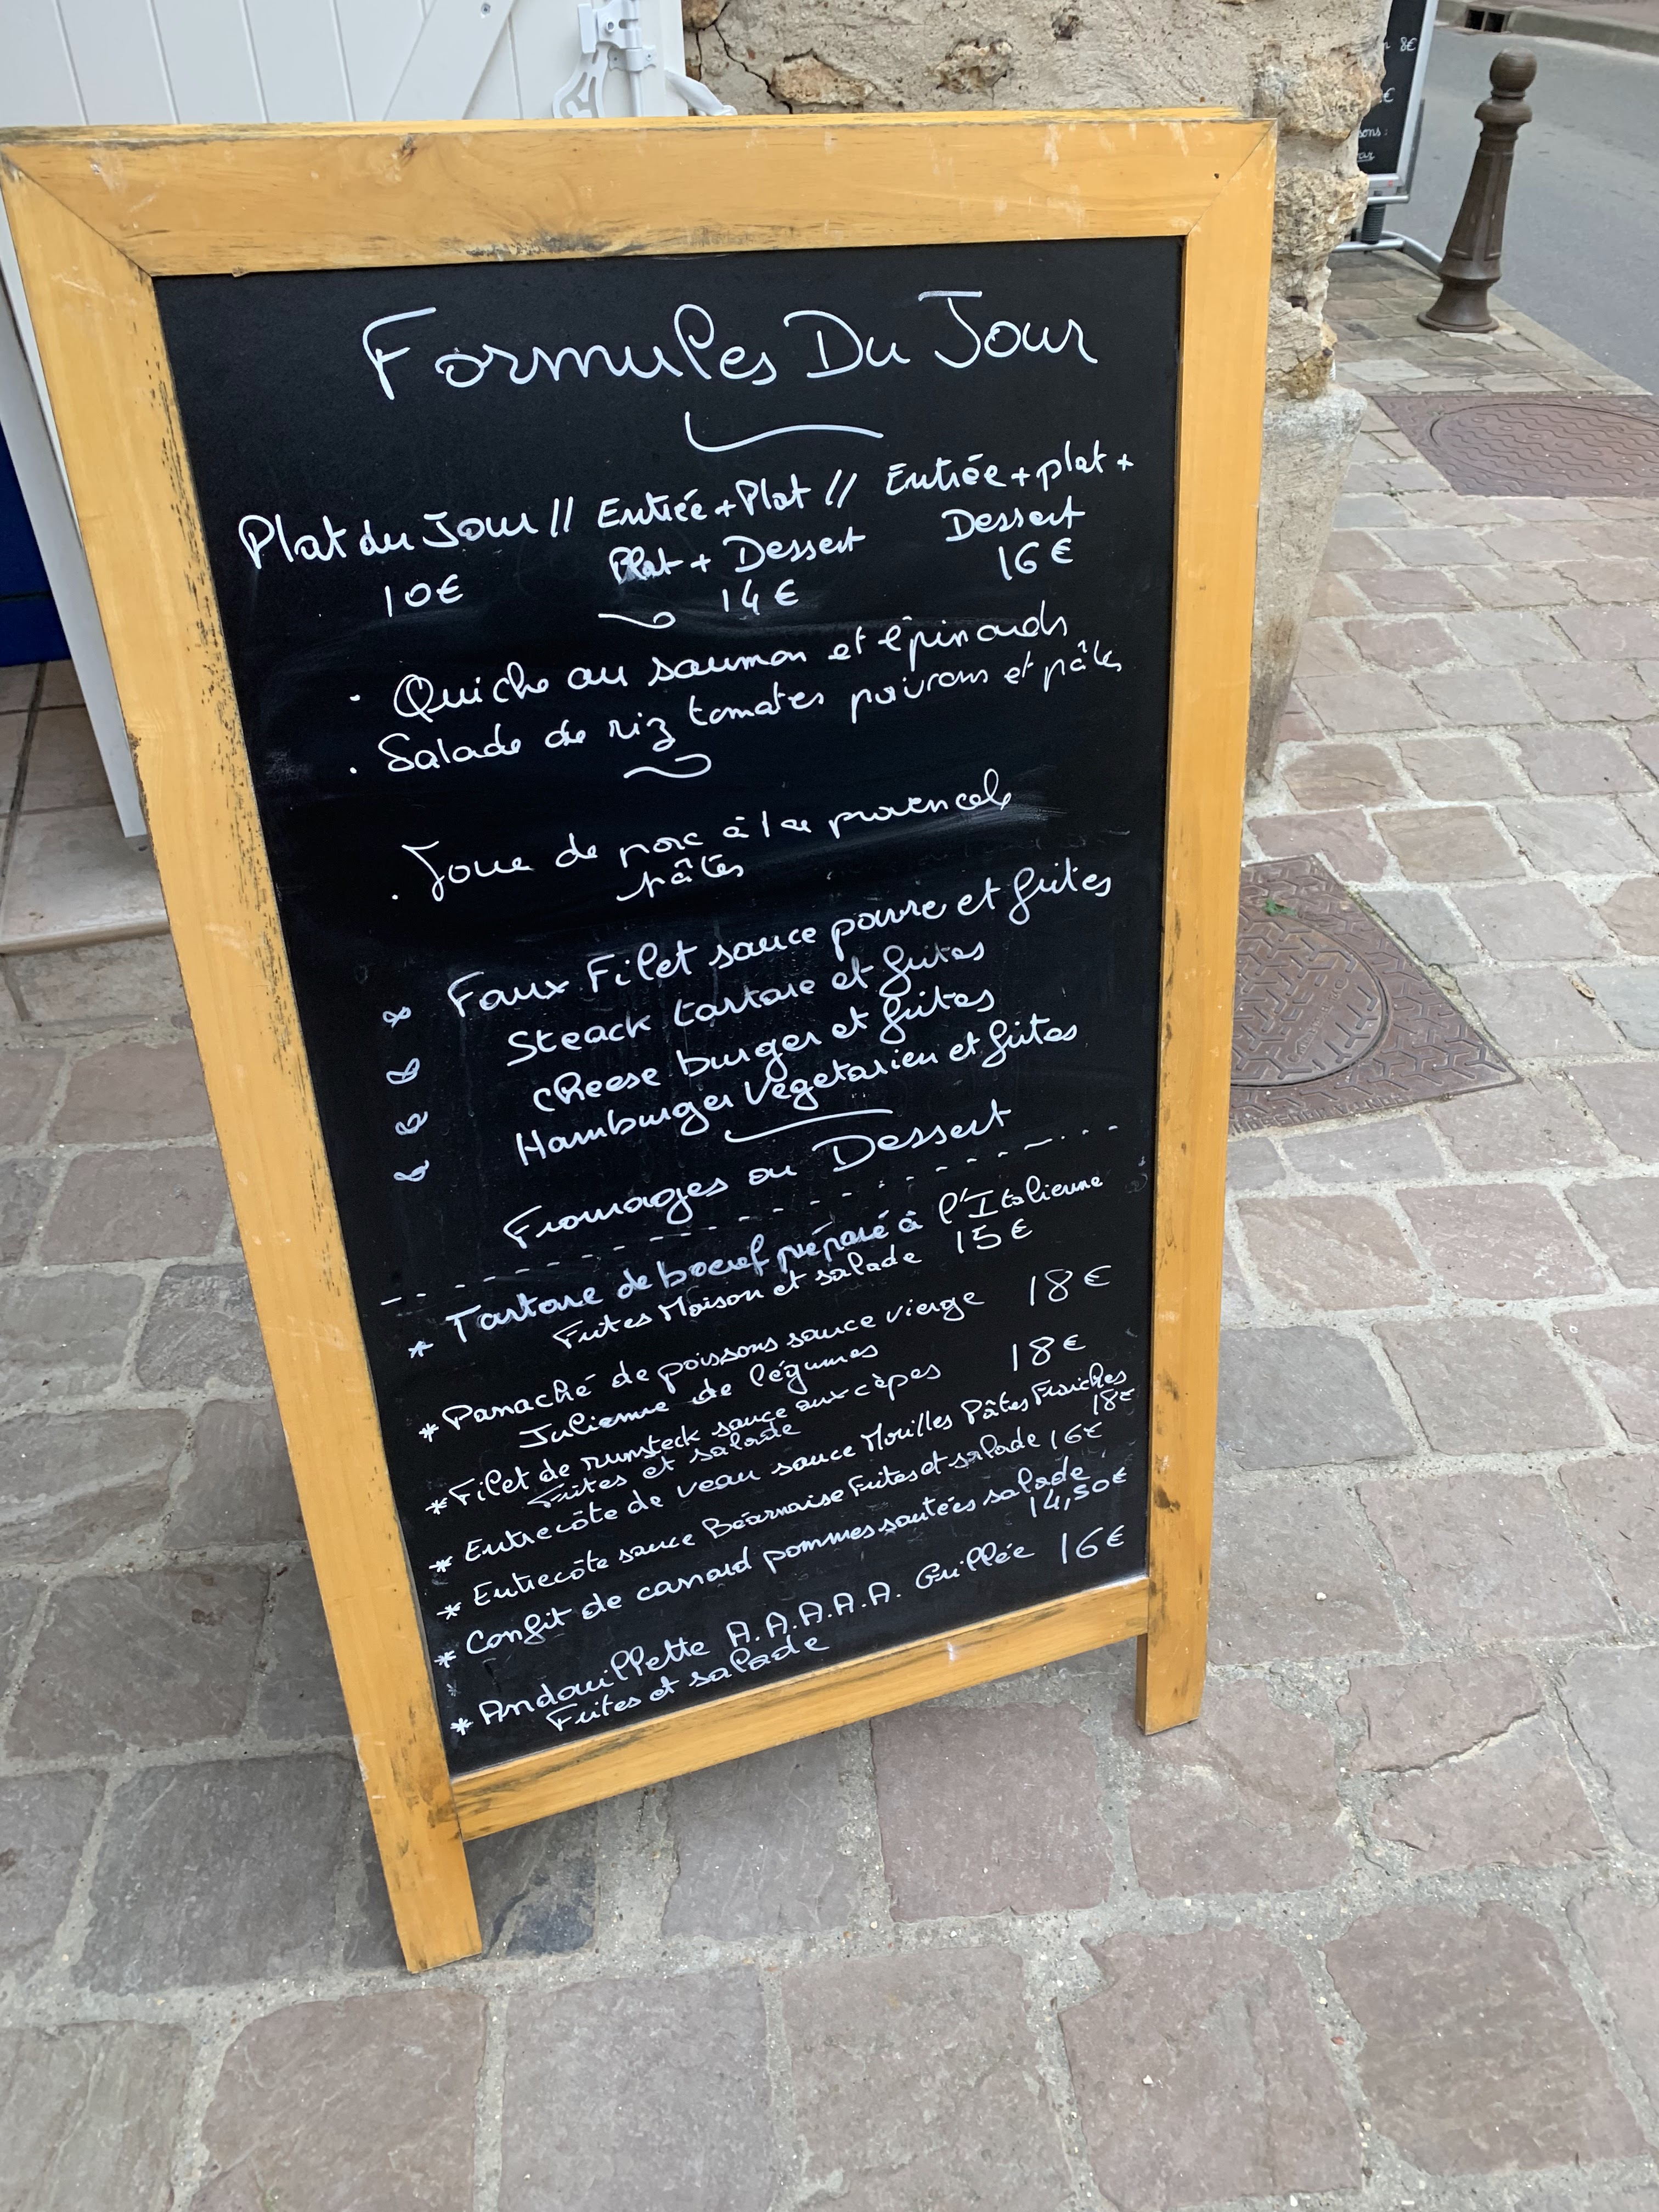 Formules Du Jour
Plat du Jour // Entrée + Plat // Entrée + plat +
Plat + Dessert Dessert
10€ 14€ 16€
· Quiche au saumon et épinards
· Salade de riz tomates poivrons et pâtes
· Joue de porc à la provencale
pâtes
Faux Filet sauce poivre et frites
Steack tartare et frites
cheese burger et frites
Hamburger Végetarien et frites
Fromages ou Dessert
* Tartare de boeuf préparé à l'Italienne
Frites Maison et salade 15€
* Panaché de poissons sauce vierge 18€
Julienne de légumes
* Filet de rumsteck sauce aux cèpes 18€
Frites et salade
* Entrecôte de veau sauce Morilles Pâtes Fraiches
18€
* Entrecôte sauce Béarnaise Frites et salade 16€
* Confit de canard pommes sautées salade
14,50€
* Andouillette A.A.A.A.A. Grillée 16€
Frites et salade
8€
€